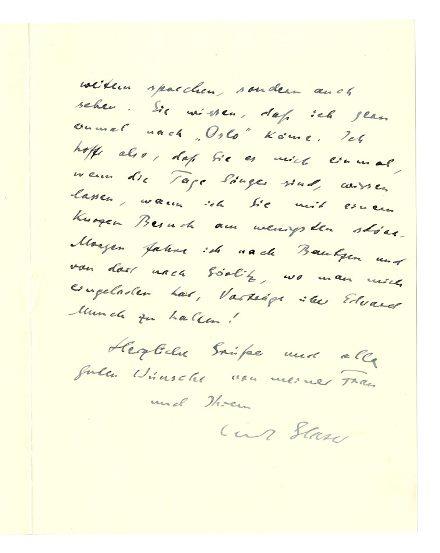 weitem sprechen, sondern auch
sehen. Sie wissen, daß ich gern
einmal nach „Oslo" käme. Ich
hoffe also, daß Sie es mich einmal,
wenn die Tage länger sind, wissen
lassen, wann ich Sie mit einem
kurzen Besuch am wenigsten störe.
Morgen fahre ich nach Bautzen und
von dort nach Görlitz, wo man mich
eingeladen hat, Vorträge über Edvard
Munch zu halten!
Herzliche Grüße und alle
guten Wünsche von meiner Frau
und Ihrem
Curt Glaser